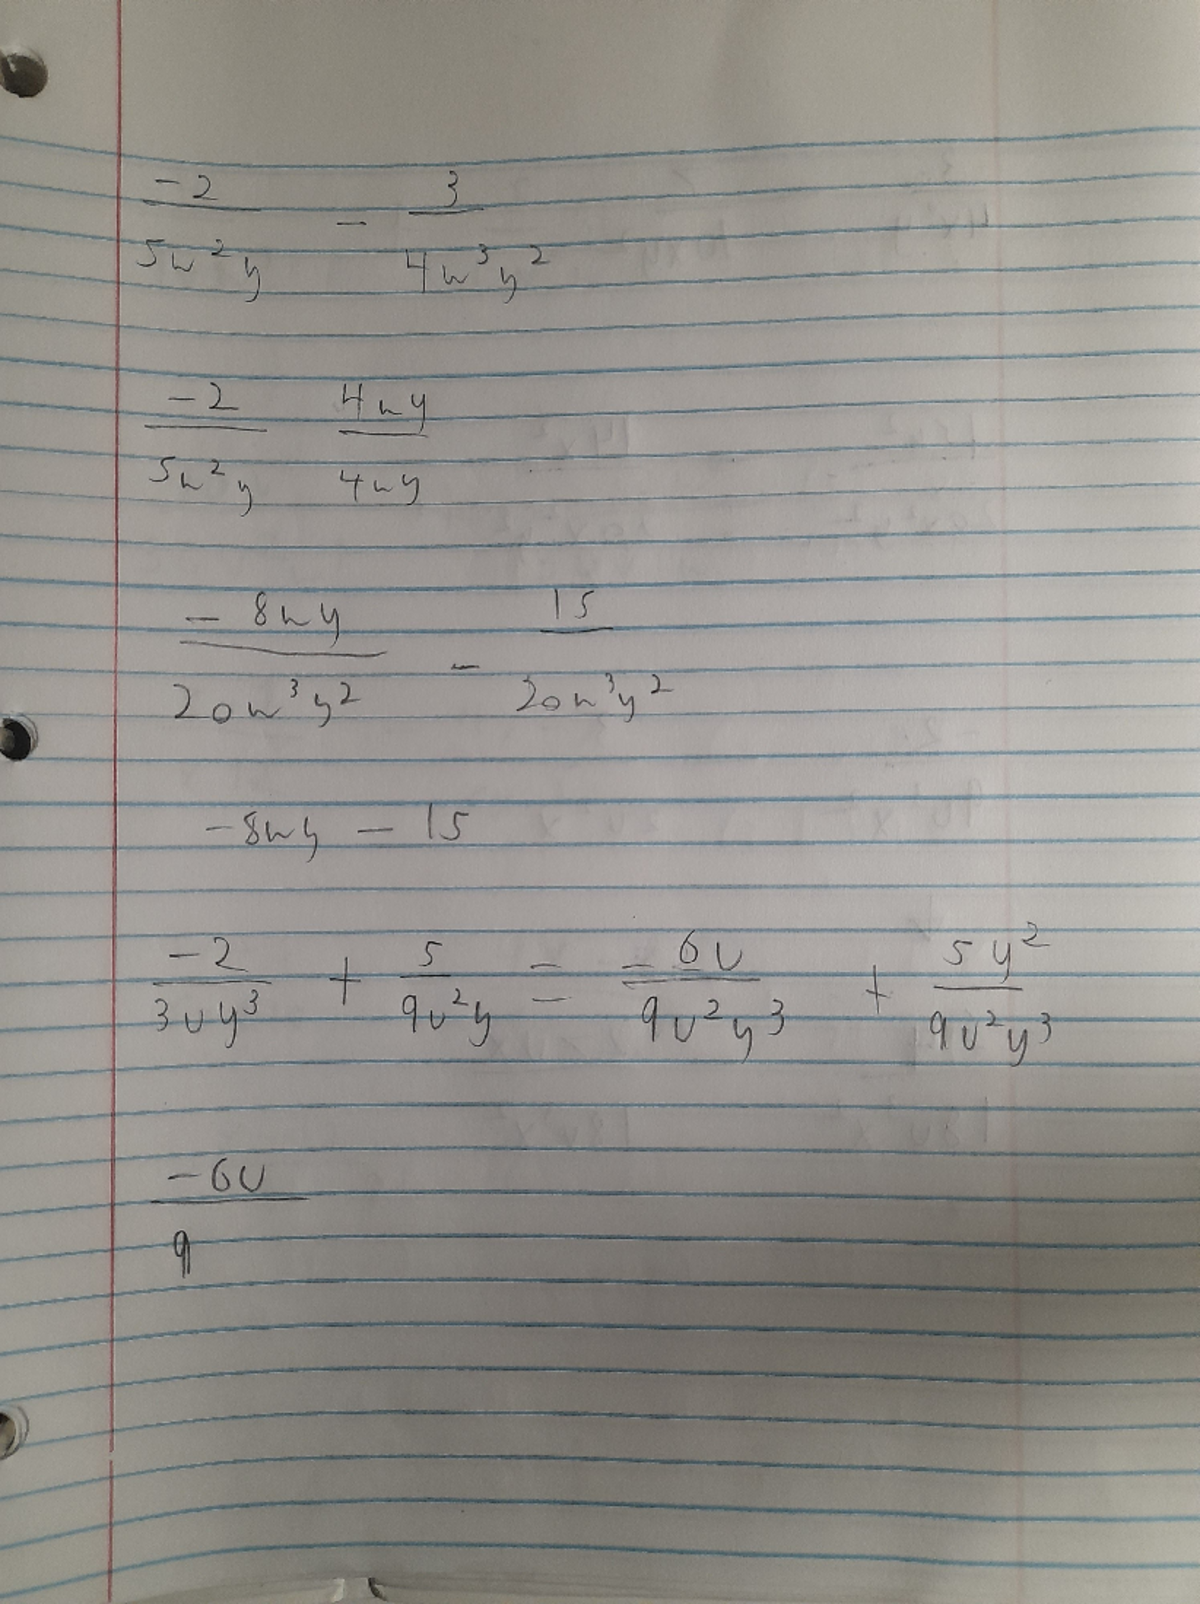 -2/5w²y - 3/4w³y²
-2/5w²y 4wy/4wy
-8wy/20w³y² - 15/20w³y²
-8wy - 15
-2/3uy³ + 5/9u²y = -6u/9u²y³ + 5y²/9u²y³
-6u/9